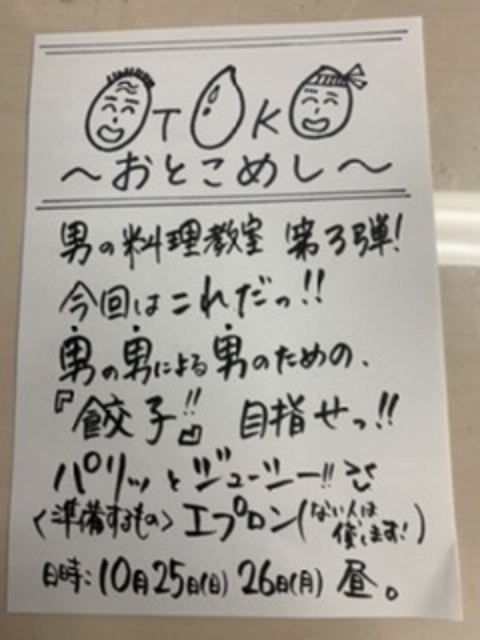 OTOKO
～おとこめし～
男の料理教室 第3弾!
今回はこれだっ!!
男の男による男のための、
『餃子!!』 目指せっ!!
パリッとジューシー!!
<準備するもの> エプロン(ない人は貸します!)
日時:10月25日(日) 26日(月) 昼。